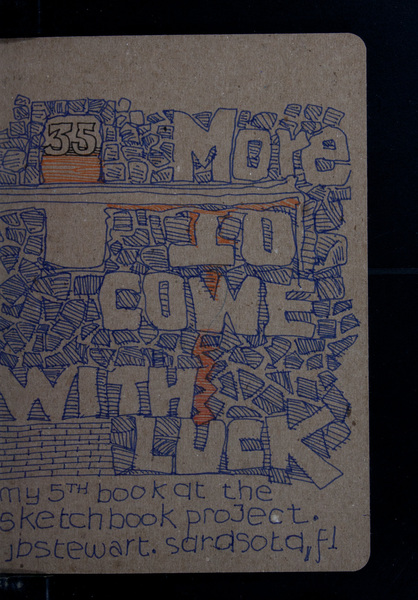 35 More
TO
COWE
WITH
LUCK
my 5TH book at the
sketchbook proJect.
jbstewart. sarasota, fl